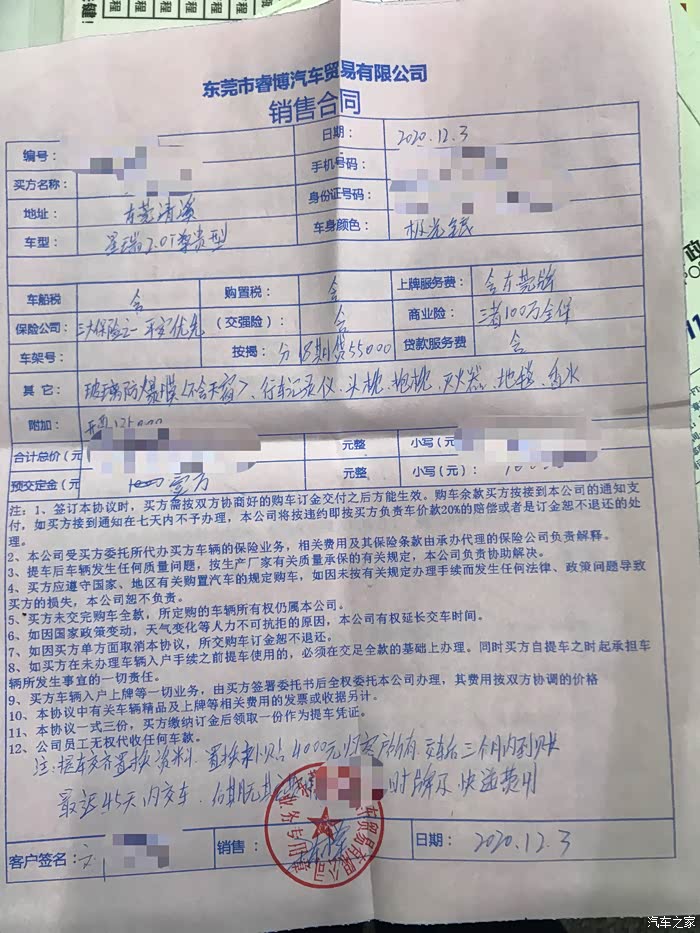 东莞市睿博汽车贸易有限公司
销售合同
编号： 日期： 2020.12.3
买方名称： 手机号码：
地址： 东莞清溪 身份证号码：
车型： 星瑞2.0T尊贵型 车身颜色： 极光银
车船税 含 购置税： 含 上牌服务费： 含东莞牌
保险公司： 三大保险之一 平安优先 （交强险）： 含 商业险： 三者100万全保
车架号： 按揭： 分 期贷55000 贷款服务费 含
其 它： 玻璃防爆膜<不含天窗>、行车记录仪、头枕、抱枕、灭火器、地毯、香水
附加：
合计总价（元 元整 小写（元
预交定金（元 壹万 元整 小写（元）：
注：1、签订本协议时，买方需按双方协商好的购车订金交付之后方能生效。购车余款买方按接到本公司的通知支
付，如买方接到通知在七天内不予办理，本公司将按违约即按买方负责车价款20%的赔偿或者是订金恕不退还的处
理。
2、本公司受买方委托所代办买方车辆的保险业务，相关费用及其保险条款由承办代理的保险公司负责解释。
3、提车后车辆发生任何质量问题，按生产厂家有关质量承保的有关规定，本公司负责协助解决。
4、买方应遵守国家、地区有关购置汽车的规定购车，如因未按有关规定办理手续而发生任何法律、政策问题导致
买方的损失，本公司恕不负责。
5、买方未交完购车全款，所定购的车辆所有权仍属本公司。
6、如因国家政策变动，天气变化等人力不可抗拒的原因，本公司有权延长交车时间。
7、如因买方单方面取消本协议，所交购车订金恕不退还。
8、如买方在未办理车辆入户手续之前提车使用的，必须在交足全款的基础上办理。同时买方自提车之时起承担车
辆所发生事宜的一切责任。
9、买方车辆入户上牌等一切业务，由买方签署委托书后全权委托本公司办理，其费用按双方协调的价格
10、本协议中有关车辆精品及上牌等相关费用的发票或收据另计。
11、本协议一式三份，买方缴纳订金后领取一份作为提车凭证。
12、公司员工无权代收任何车款。
注：提车交齐置换资料，置换补贴4000元归客户所有 交车后三个月内到账
最迟45天内交车， 临时牌及快递费用
客户签名： 销售： 日期： 2020.12.3
汽车之家